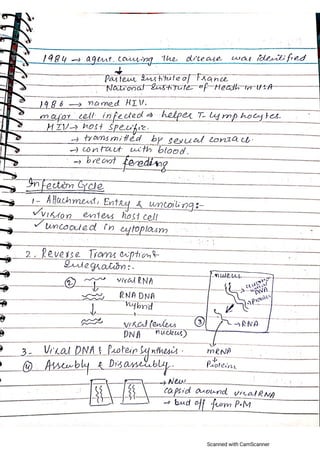 1984 → agent causing the disease was identified
↓
Pasteur Institute of France
National Institute of Health in USA
1986 → named HIV.
major cell infected → helper T-lymphocytes.
HIV → host specific.
→ transmitted by sexual contact
→ contact with blood.
→ breast feeding
Infection Cycle
1- Attachment, Entry & uncoating:-
✓ virion enters host cell
✓ uncoated in cytoplasm
2. Reverse Transcription &
Integration:-
② viral RNA
RNA DNA
hybrid
viral (enters
DNA nucleus)
nucleus
DNA
③ → RNA
3- Viral DNA & Protein Synthesis.
mRNA
+
Proteins
④ Assembly & Disassembly.
→ New
capsid around viral RNA
→ bud off from P.M
Scanned with CamScanner